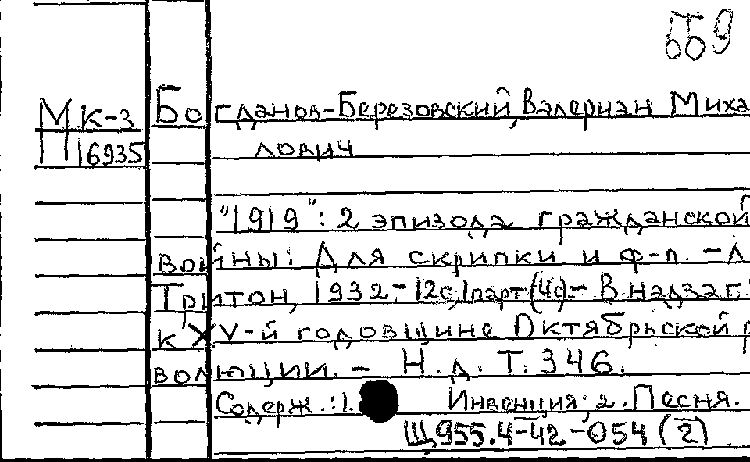 559
МК-3 Богданов-Березовский, Валериан Миха
П16935 лович
"1919": 2 эпизода гражданской
войны: Для скрипки и ф-п. - Л
Тритон, 1932.- 12с, 1парт(4с).- В надзаг:
к XV-й годовщине Октябрьской р
волюции. - Н.д.Т.346.
Содерж.:1. Инвенция; 2. Песня.
Щ955.4-42-054(2)